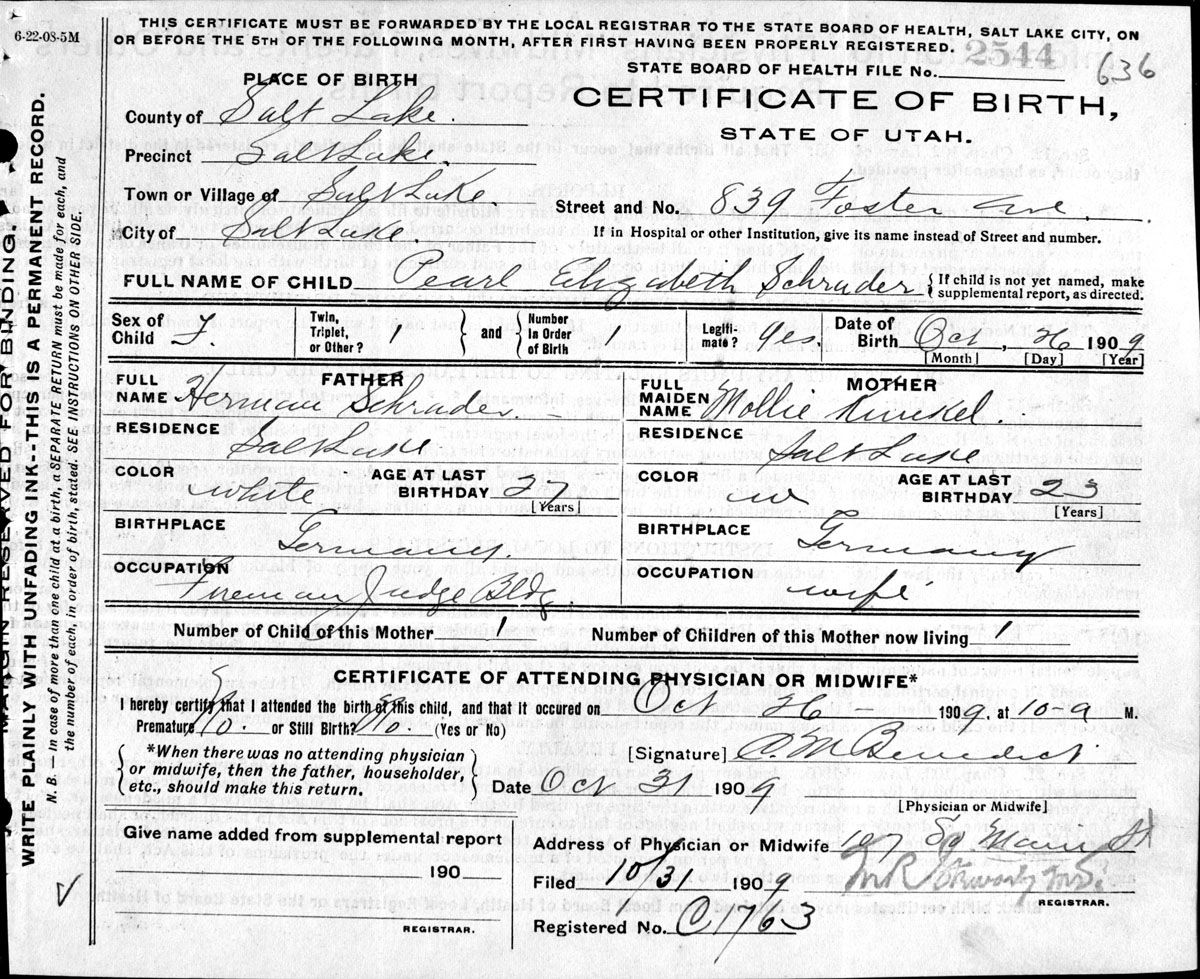 6-22-08-5M
THIS CERTIFICATE MUST BE FORWARDED BY THE LOCAL REGISTRAR TO THE STATE BOARD OF HEALTH, SALT LAKE CITY, ON
OR BEFORE THE 5TH OF THE FOLLOWING MONTH, AFTER FIRST HAVING BEEN PROPERLY REGISTERED.
STATE BOARD OF HEALTH FILE No. 2544 636
PLACE OF BIRTH
CERTIFICATE OF BIRTH,
STATE OF UTAH.
County of Salt Lake.
Precinct Salt Lake.
Town or Village of Salt Lake.
Street and No. 839 Foster Ave.
City of Salt Lake.
If in Hospital or other Institution, give its name instead of Street and number.
FULL NAME OF CHILD Pearl Elizabeth Schrader
If child is not yet named, make supplemental report, as directed.
Sex of Child F.
Twin, Triplet, or Other? 1
and Number in Order of Birth
Legitimate? Yes.
Date of Birth Oct, 26 1909
[Month] [Day] [Year]
FATHER
FULL NAME Herman Schrader
RESIDENCE Salt Lake
COLOR white
AGE AT LAST BIRTHDAY 27
[Years]
BIRTHPLACE Germany
OCCUPATION Fireman Judge Bldg.
MOTHER
FULL MAIDEN NAME Mollie Kunkel.
RESIDENCE Salt Lake
COLOR w
AGE AT LAST BIRTHDAY 23
[Years]
BIRTHPLACE Germany
OCCUPATION wife
Number of Child of this Mother 1
Number of Children of this Mother now living 1
CERTIFICATE OF ATTENDING PHYSICIAN OR MIDWIFE*
I hereby certify that I attended the birth of this child, and that it occured on Oct 26 1909, at 10-a M.
Premature No. or Still Birth? No. (Yes or No)
*When there was no attending physician
or midwife, then the father, householder,
etc., should make this return.
[Signature] C M Benedict
Date Oct 31 1909
[Physician or Midwife]
Give name added from supplemental report
190
REGISTRAR.
Address of Physician or Midwife 107 So Main St
Filed 10/31 1909
REGISTRAR.
Registered No. C1763
MARGIN RESERVED FOR BINDING
WRITE PLAINLY WITH UNFADING INK--THIS IS A PERMANENT RECORD.
N. B. In case of more than one child at a birth, a SEPARATE RETURN must be made for each, and
the number of each, in order of birth, stated. SEE INSTRUCTIONS ON OTHER SIDE.